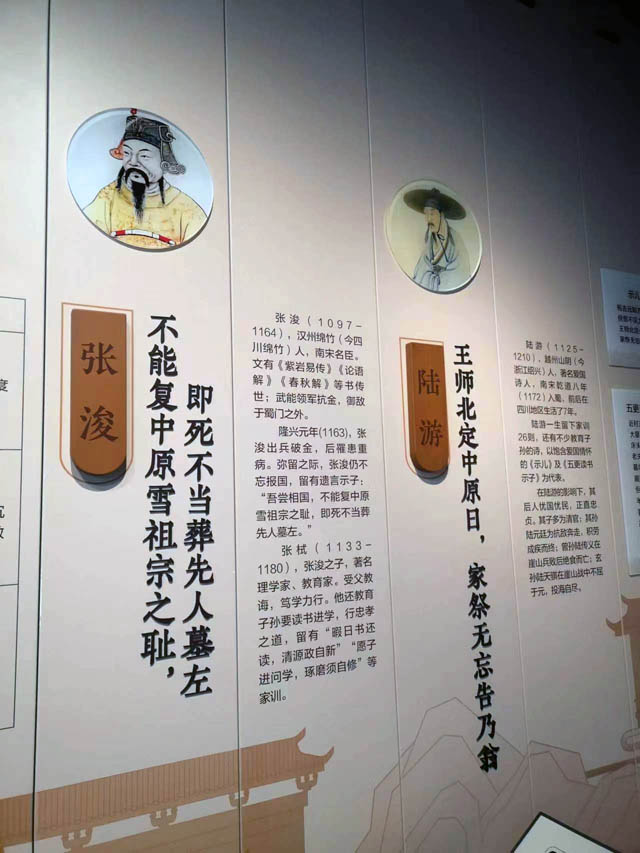 张浚
不能复中原雪祖宗之耻，
即死不当葬先人墓左
张浚（1097-
1164），汉州绵竹（今四
川绵竹）人，南宋名臣。
文有《紫岩易传》《论语
解》《春秋解》等书传
世；武能领军抗金，御敌
于蜀门之外。
隆兴元年(1163)，张
浚出兵破金，后罹患重
病。弥留之际，张浚仍不
忘报国，留有遗言示子：
“吾尝相国，不能复中原
雪祖宗之耻，即死不当葬
先人墓左。”
张栻（1133-
1180），张浚之子，著名
理学家、教育家。受父教
诲，笃学力行。他还教育
子孙要读书进学，行忠孝
之道，留有“暇日书还
读，清源政自新”“愿子
进问学，琢磨须自修”等
家训。
陆游
王师北定中原日，家祭无忘告乃翁
陆游（1125-
1210），越州山阴（今
浙江绍兴）人，著名爱国
诗人，南宋乾道八年
（1172）入蜀，前后在
四川地区生活了7年。
陆游一生留下家训
26则，还有不少教育子
孙的诗，以饱含爱国情怀
的《示儿》及《五更读书
示子》为代表。
在陆游的影响下，其
后人忧国忧民，正直忠
贞。其子多为清官；其孙
陆元廷为抗敌奔走，积劳
成疾而终；曾孙陆传义在
崖山兵败后绝食而亡；玄
孙陆天骐在崖山战中不屈
于元，投海自尽。
示儿
五更